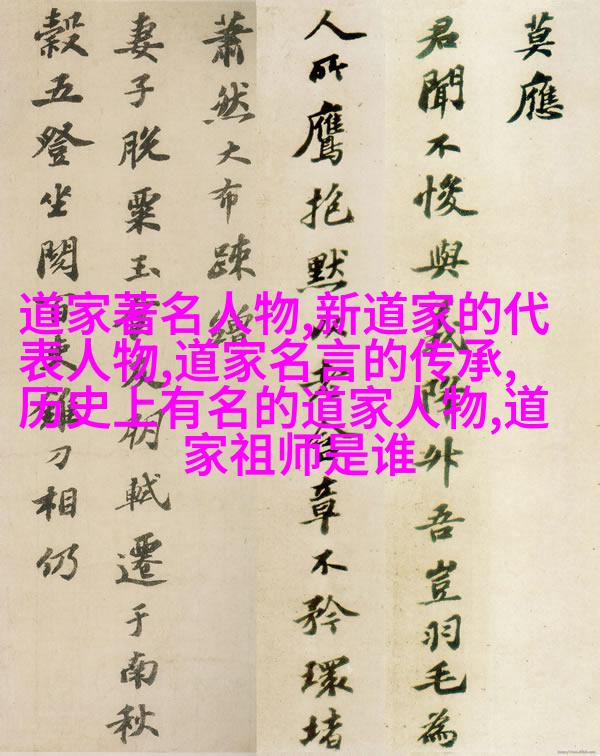 莫應
君聞不悛與義降外吾豈羽毛為
人所鷹抱默以老含章不矜環堵
蕭然大布疎繒
妻子脱粟玉食友朋軾遷于南秋
穀五登坐閱百吏錐刀相仍
道家著名人物,新道家的代
表人物,道家名言的传承,
历史上有名的道家人物,道
家祖师是谁